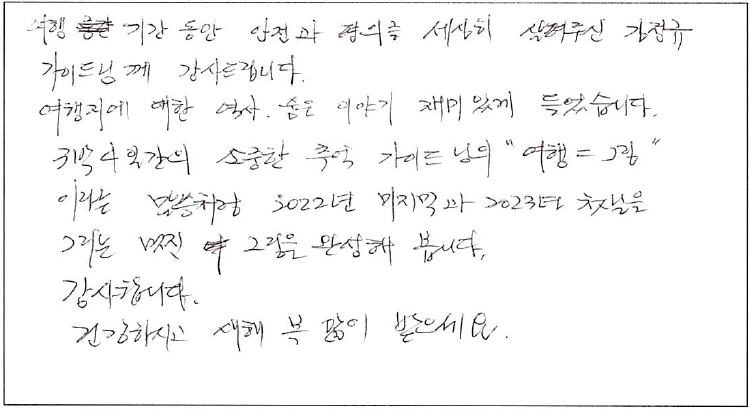 여행 기간 동안 안전과 편의를 세심히 살펴주신 김정규
가이드님께 감사드립니다.
여행지에 대한 역사. 숨은 이야기 재미있게 들었습니다.
3박4일간의 소중한 추억 가이드님의 "여행=그림"
이라는 말씀처럼 2022년 마지막과 2023년 첫날을
그리는 멋진 그림을 완성해 봅니다.
감사합니다.
건강하시고 새해 복 많이 받으세요.